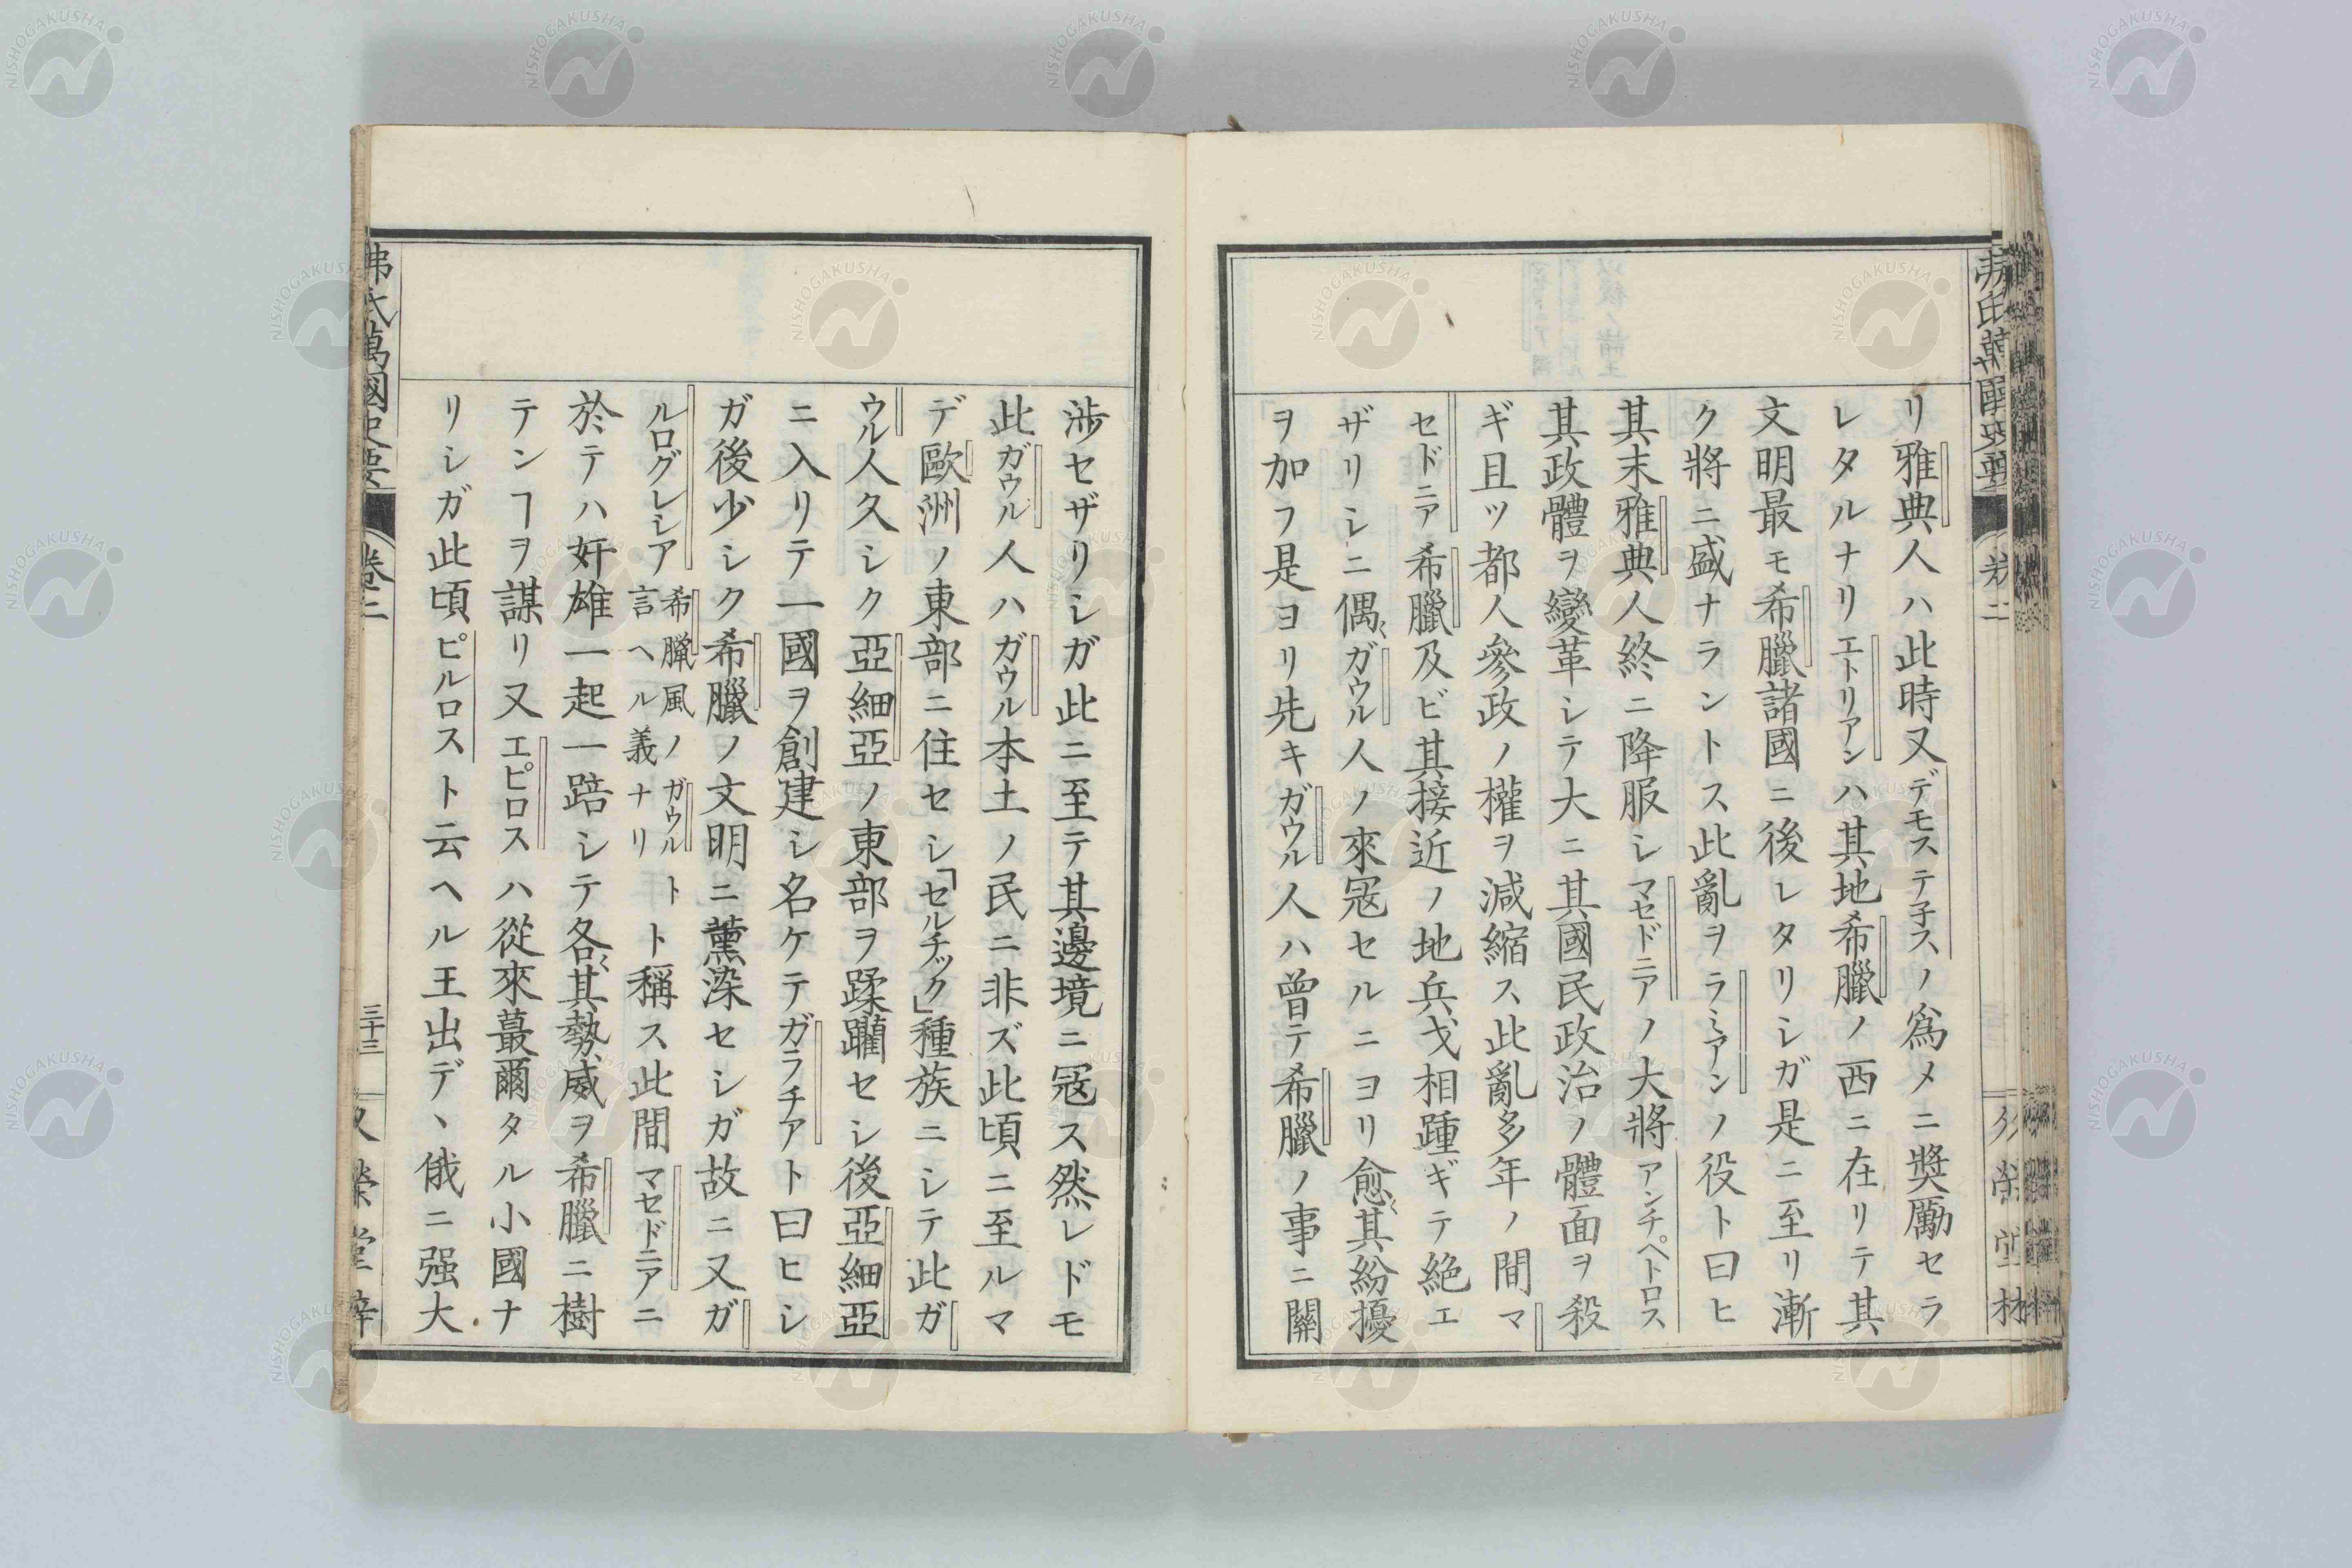 リ雅典人ハ此時又デモステ子スノ爲メニ奬勵セラ
レタルナリエトリアンハ其地希臘ノ西ニ在リテ其
文明最モ希臘諸國ニ後レタリシガ是ニ至リ漸
ク將ニ盛ナラントス此亂ヲラミアンノ役ト曰ヒ
其末雅典人終ニ降服シマセドニアノ大將アンチペトロス
其政體ヲ變革シテ大ニ其國民政治ノ體面ヲ殺
ギ且ツ都人參政ノ權ヲ減縮ス此亂多年ノ間マ
セドニア希臘及ビ其接近ノ地兵戈相踵ギテ絶エ
ザリシニ偶〻ガウル人ノ來寇セルニヨリ愈〻其紛擾
ヲ加フ是ヨリ先キガウル人ハ曾テ希臘ノ事ニ關
渉セザリシガ此ニ至テ其邊境ニ寇ス然レドモ
此ガウル人ハガウル本土ノ民ニ非ズ此頃ニ至ルマ
デ歐洲ノ東部ニ住セシ「セルチック」種族ニシテ此ガ
ウル人久シク亞細亞ノ東部ヲ蹂躪セシ後亞細亞
ニ入リテ一國ヲ創建シ名ケテガラチアト曰ヒシ
ガ後少シク希臘ノ文明ニ薰染セシガ故ニ又ガ
ルログレシア希臘風ノガウルト言ヘル義ナリト稱ス此間マセドニアニ
於テハ奸雄一起一踣シテ各〻其勢威ヲ希臘ニ樹
テンヿヲ謀リ又エピロスハ從來蕞爾タル小國ナ
リシガ此頃ピルロスト云ヘル王出デヽ俄ニ强大
弗氏萬國史要 卷二 三十三 又榮堂梓
NISHOGAKUSHA